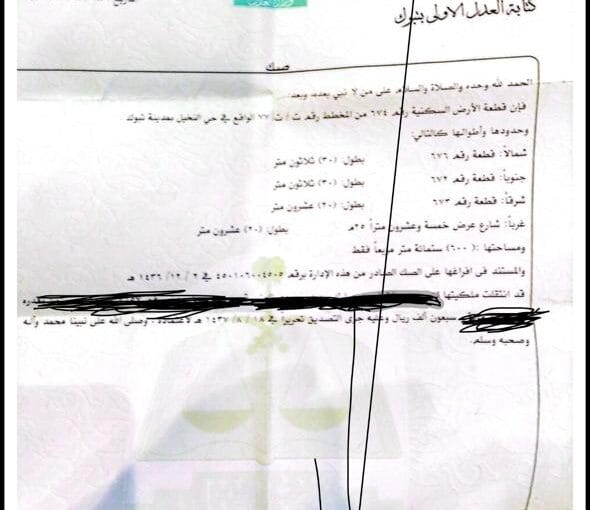 كتابة العدل الاولى بتبوك
صك
الحمد لله وحده والصلاة والسلام على من لا نبي بعده، وبعد:
فإن قطعة الأرض السكنية رقم ٦٧٤ من المخطط رقم ت / ت ٧٧ الواقع في حي النخيل بمدينة تبوك
وحدودها وأطوالها كالتالي:
شمالاً: قطعة رقم ٦٧٦ بطول: (٣٠) ثلاثون متر
جنوباً: قطعة رقم ٦٧٢ بطول: (٣٠) ثلاثون متر
شرقاً: قطعة رقم ٦٧٣ بطول: (٢٠) عشرون متر
غرباً: شارع عرض خمسة وعشرون متراً ٢٥م بطول: (٢٠) عشرون متر
ومساحتها: (٦٠٠) ستمائة متر مربعاً فقط
والمستند في افراغها على الصك الصادر من هذه الإدارة برقم ٤٥٠١٠٦٠٠٤٥٠٥ في ٢ / ١٢ / ١٤٣٦ هـ
قد انتقلت ملكيتها
سبعون ألف ريال وعليه جرى التصديق تحريراً في ١٨ / ٨ / ١٤٣٧ هـ لاعتماده، وصلى الله على نبينا محمد وآله
وصحبه وسلم.